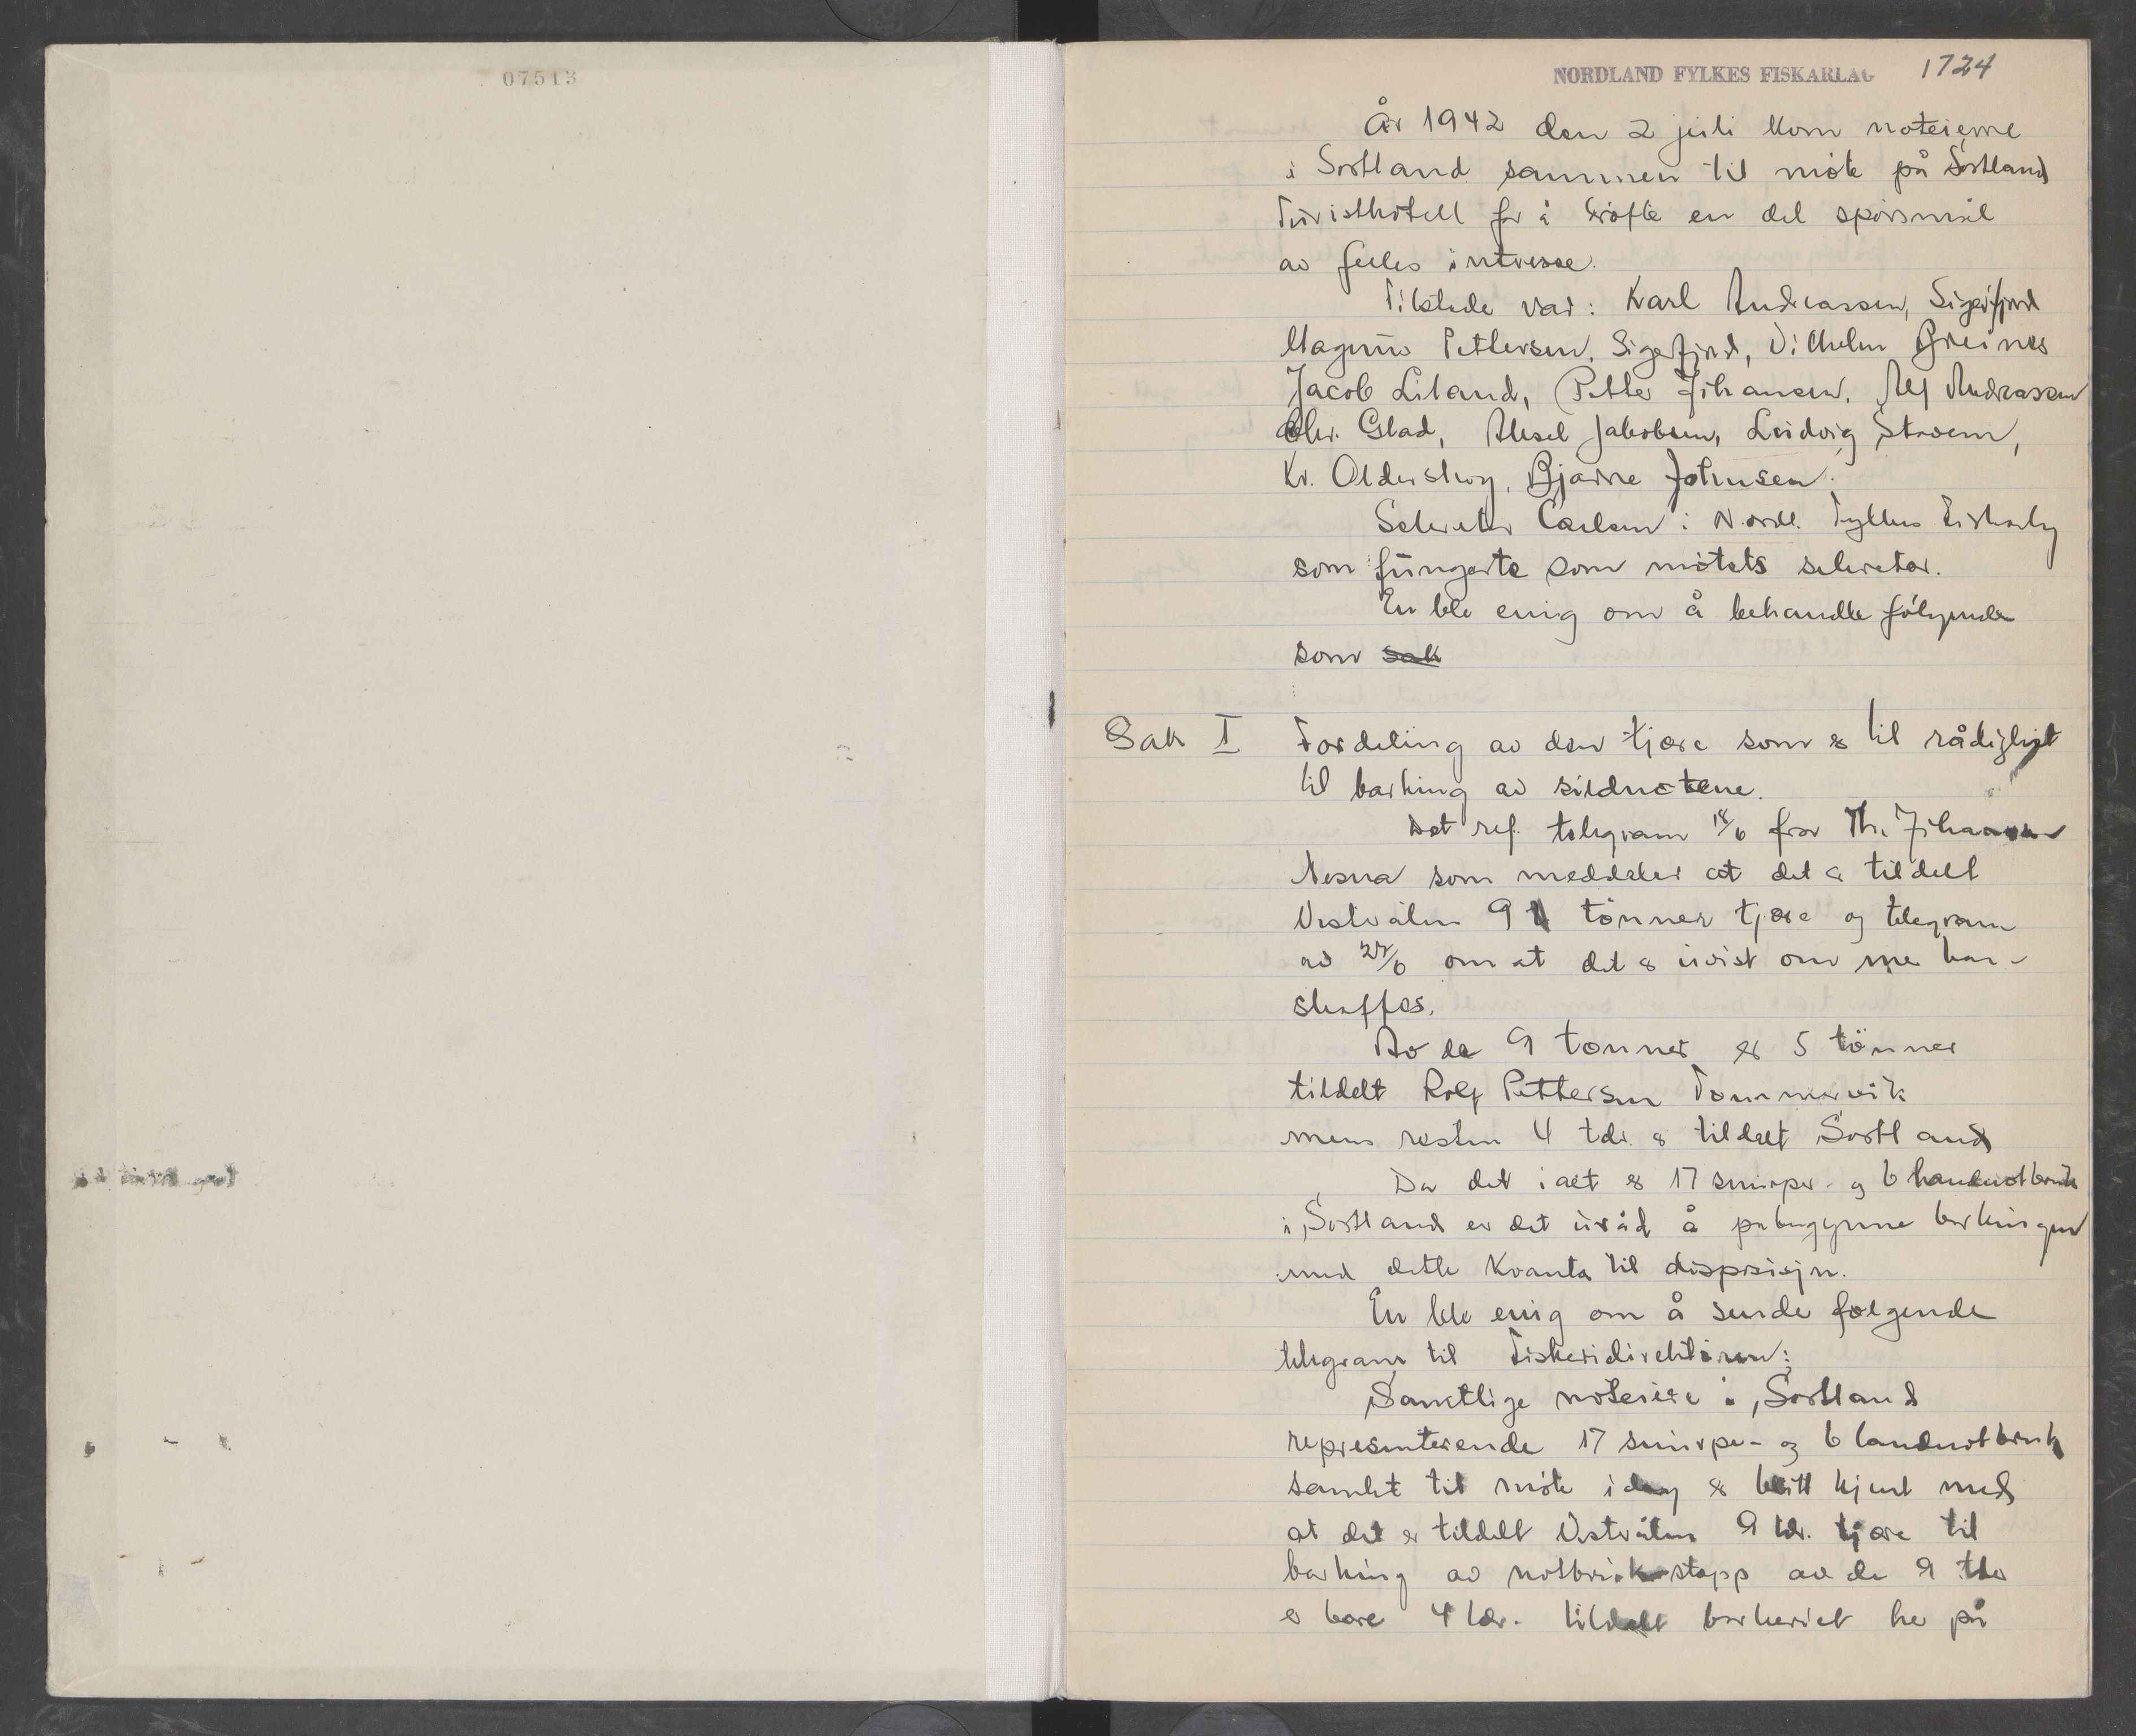 07513
NORDLAND FYLKES FISKARLAG 1724
År 1942 den 2 juli kom noteierne
i Sortland sammen til møte på Sortland
Turisthotell for å drøfte en del spørsmål
av felles intresse.
Tilstede var: Karl Andreassen, Sigerfjord
Magnus Pettersen, Sigerfjord, Vilhelm Breines
Jacob Liland, Petter Johansen, Alf Andreassen
Chr. Glad, Aksel Jakobsen, Ludvig Strøm,
Kr. Olderskog, Bjarne Johnsen.
Sekretær Carlsen i Nordl. Fylkes Fiskarlag
som fungerte som møtets sekretær.
En ble enig om å behandle følgende
som sak
Sak I Fordeling av den tjære som er til rådighet
til barking av sildnøtene.
Det ref. telegram 18/6 fra Th. Johansen
Nesna som meddeler at det er tildelt
Vesterålen 9 tønner tjære og telegram
av 27/6 om at det er uvist om mer kan
skaffes.
Av de 9 tønner er 5 tønner
tildelt Rolf Pettersen Tommervik
mens resten 4 tdr. er tildelt Sortland
Da det i alt er 17 snurpe- og 6 landnotbruk
i Sortland er det uråd å påbegynne barkingen
med dette kvanta til disposisjon.
En ble enig om å sende følgende
telegram til Fiskeridirektøren:
Samtlige noteiere i Sortland
representerende 17 snurpe- og 6 landnotbruk
samlet til møte idag er blitt kjent med
at det er tildelt Vesterålen 9 tdr. tjære til
barking av notbruk stopp av de 9 tdr
er bare 4 tdr. tildelt barkeriet her på